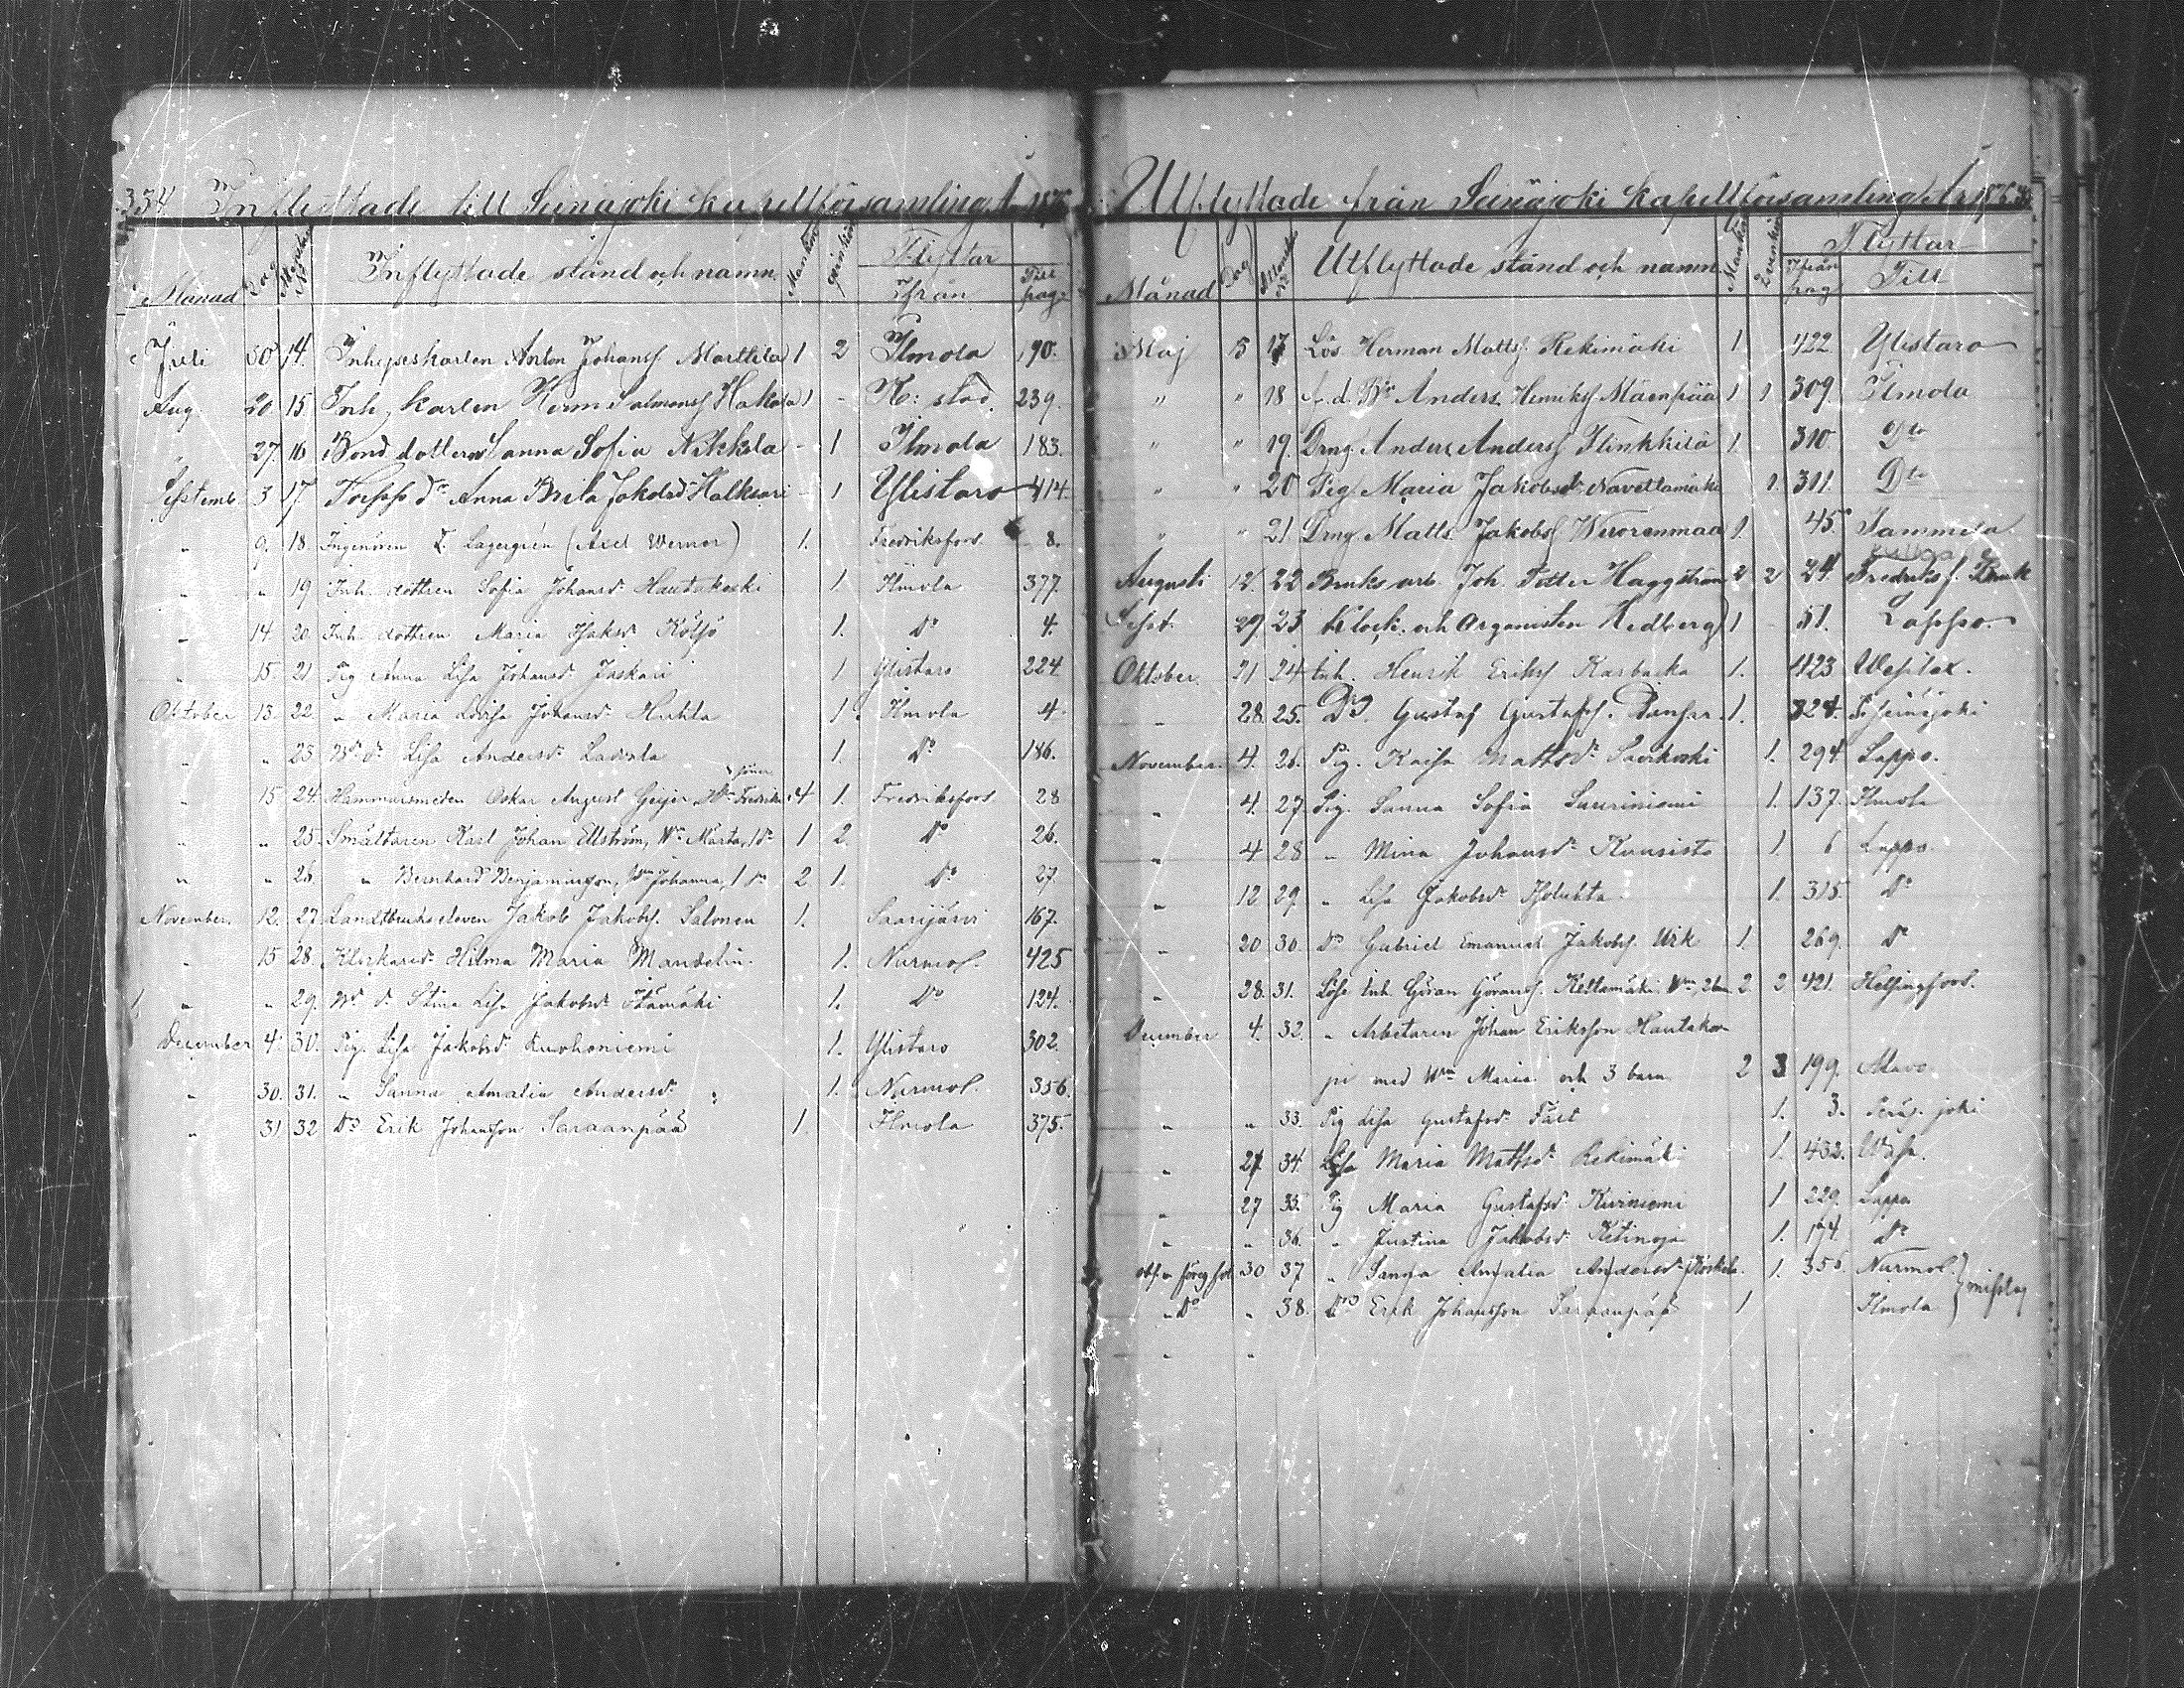 334 Inflyttade till Seinäjoki kapellförsamling År 187
Månad Dag Attestens No Inflyttade stånd och namn Mankön Qvinkön Flyttar Ifrån Till pag.
Juli 30 14. Inhyseskarlen Anton Johanss. Marttila 1 2 Ilmola 190.
Aug. 20 15 Inh. karlen Herm Salomonss Hakola 1 - K: stad 239.
" 27. 16 Bond. dottern Sanna Sofia Nikkola - 1 Ilmola 183.
Septemb. 3 17. Torpp. dr Anna Brita Jakobsdr - 1 Ylistaro 414
" 9. 18. Ingeniören Lagergrén (Axel Werner) 1. Fredriksfors 8.
" " 19 Inh. dottren Sofia Johansdr Hautakoski 1. Ilmola 377.
" 14. 20. Inh. dottren Maria Isaksdr Költsö 1. Do 4.
" 15. 21 Pig. Anna Lisa Johansdr Jaskari 1 Ylistaro 224
Oktober 13. 22. " Maria Lovisa Johansdr Huhta 1. Ilmola 4.
" " 23. Bd. dr Lisa Andersdr 1. Do 186.
söner
" 15 24. Hammarsmeden Oskar August Geijer Fredrika 4 1. Fredriksfors 28
" " 25. Smältaren Karl Johan Ellström, Wn Märta, 1 dr 1 2. Do 26.
" " 26. " Bernhard Benjaminsson, Wn Johanna, 1 2. 1. Do 27.
November. 12. 27. Landtbrukseleven Jakob Jakobs. Salonen 1. Saarijärvi 167.
" 15 28. Klockaredr Hilma Maria Mandelin. 1. Nurmo 425
" " 29. Bd dr Stina Lisa Jakobsdr Itämäki 1. Do 124.
December 4. 30. Pig. Lisa Jakobsdr Ruohoniemi 1. Ylistaro 302.
" 30. 31. " Sanna Amalia Andersdr 1. Nurmo 356.
" 31 32 Do Erik Johansson Saraanpää 1. Ilmola 375.
Utflyttade från Seinäjoki kapellförsamling År 1876
Månad Dag Attestens No Utflyttade stånd och namn Mankön Qvinkön Flyttar Ifrån pag Till
Maj 13 17 Lös. Herman Mattss. Rekimäki 1 422 Ylistaro
" " 18 f. d. Br Anders Henrikss Mäenpää 1 1 309 Ilmola
" " 19. Drng. Anders Anderss Flinkkilä 1. 310 Dto
" " 20 Pig. Maria Jakobsdr Navettamäki 1. 311. Dto
" " 21. Drng. Matts Jakobss 1. 45
Augusti 12. 22 Bruks arb. Joh. Petter Haggström 2 2 24. Fredriksf. Bruk
Sept. 29 23 Klock. och Organisten Hedberg 1 - 51. Lappo.
Oktober. 21 24 Inh. Henrik Erikss Karbacka 1. 423
" 28. 25. Do. Gustaf Gustafss. 1. 324.
November. 4. 26. Pig. Kaisa Mattsdr Savikoski 1. 294 Lappo.
" 4. 27. Pig. Sanna Sofia Lauriniemi 1. 137. Ilmola
" 4 28 " Mina Johansdr Kuusisto 1. 6 Lappo.
" 12 29. " Lisa Jakobsdr 1. 315. Do
" 20 30. Do Gabriel Emanuel Jakobss. 1. 269. Do
" 28. 31. Löse Inh. Göran Göranss. Keltamäki Wn 2 2 421. Helsingfors.
December 4. 32. " Arbetaren Johan Eriksson Hautakor-
pi med Wn Maria och 3 barn 2 3 199. Alavo
" " 33. Pig Lisa Gustafsdr 1. 3. joki
" 27 34. Lösa Maria Mattsdr Rekimäki 1. 432. Wasa.
" 27 35. Pig Maria Gustafsdr Kiviniemi 1 229. Lappo
" " 36. " Justina Jakobsdr Ketinoja 1. 174. Do
30 37 " Sanna Amalia Andersdr 1. 356. Nurmo
" Do " 38. Do Erik Johansson Saraanpää 1 Ilmola } misstag
" "